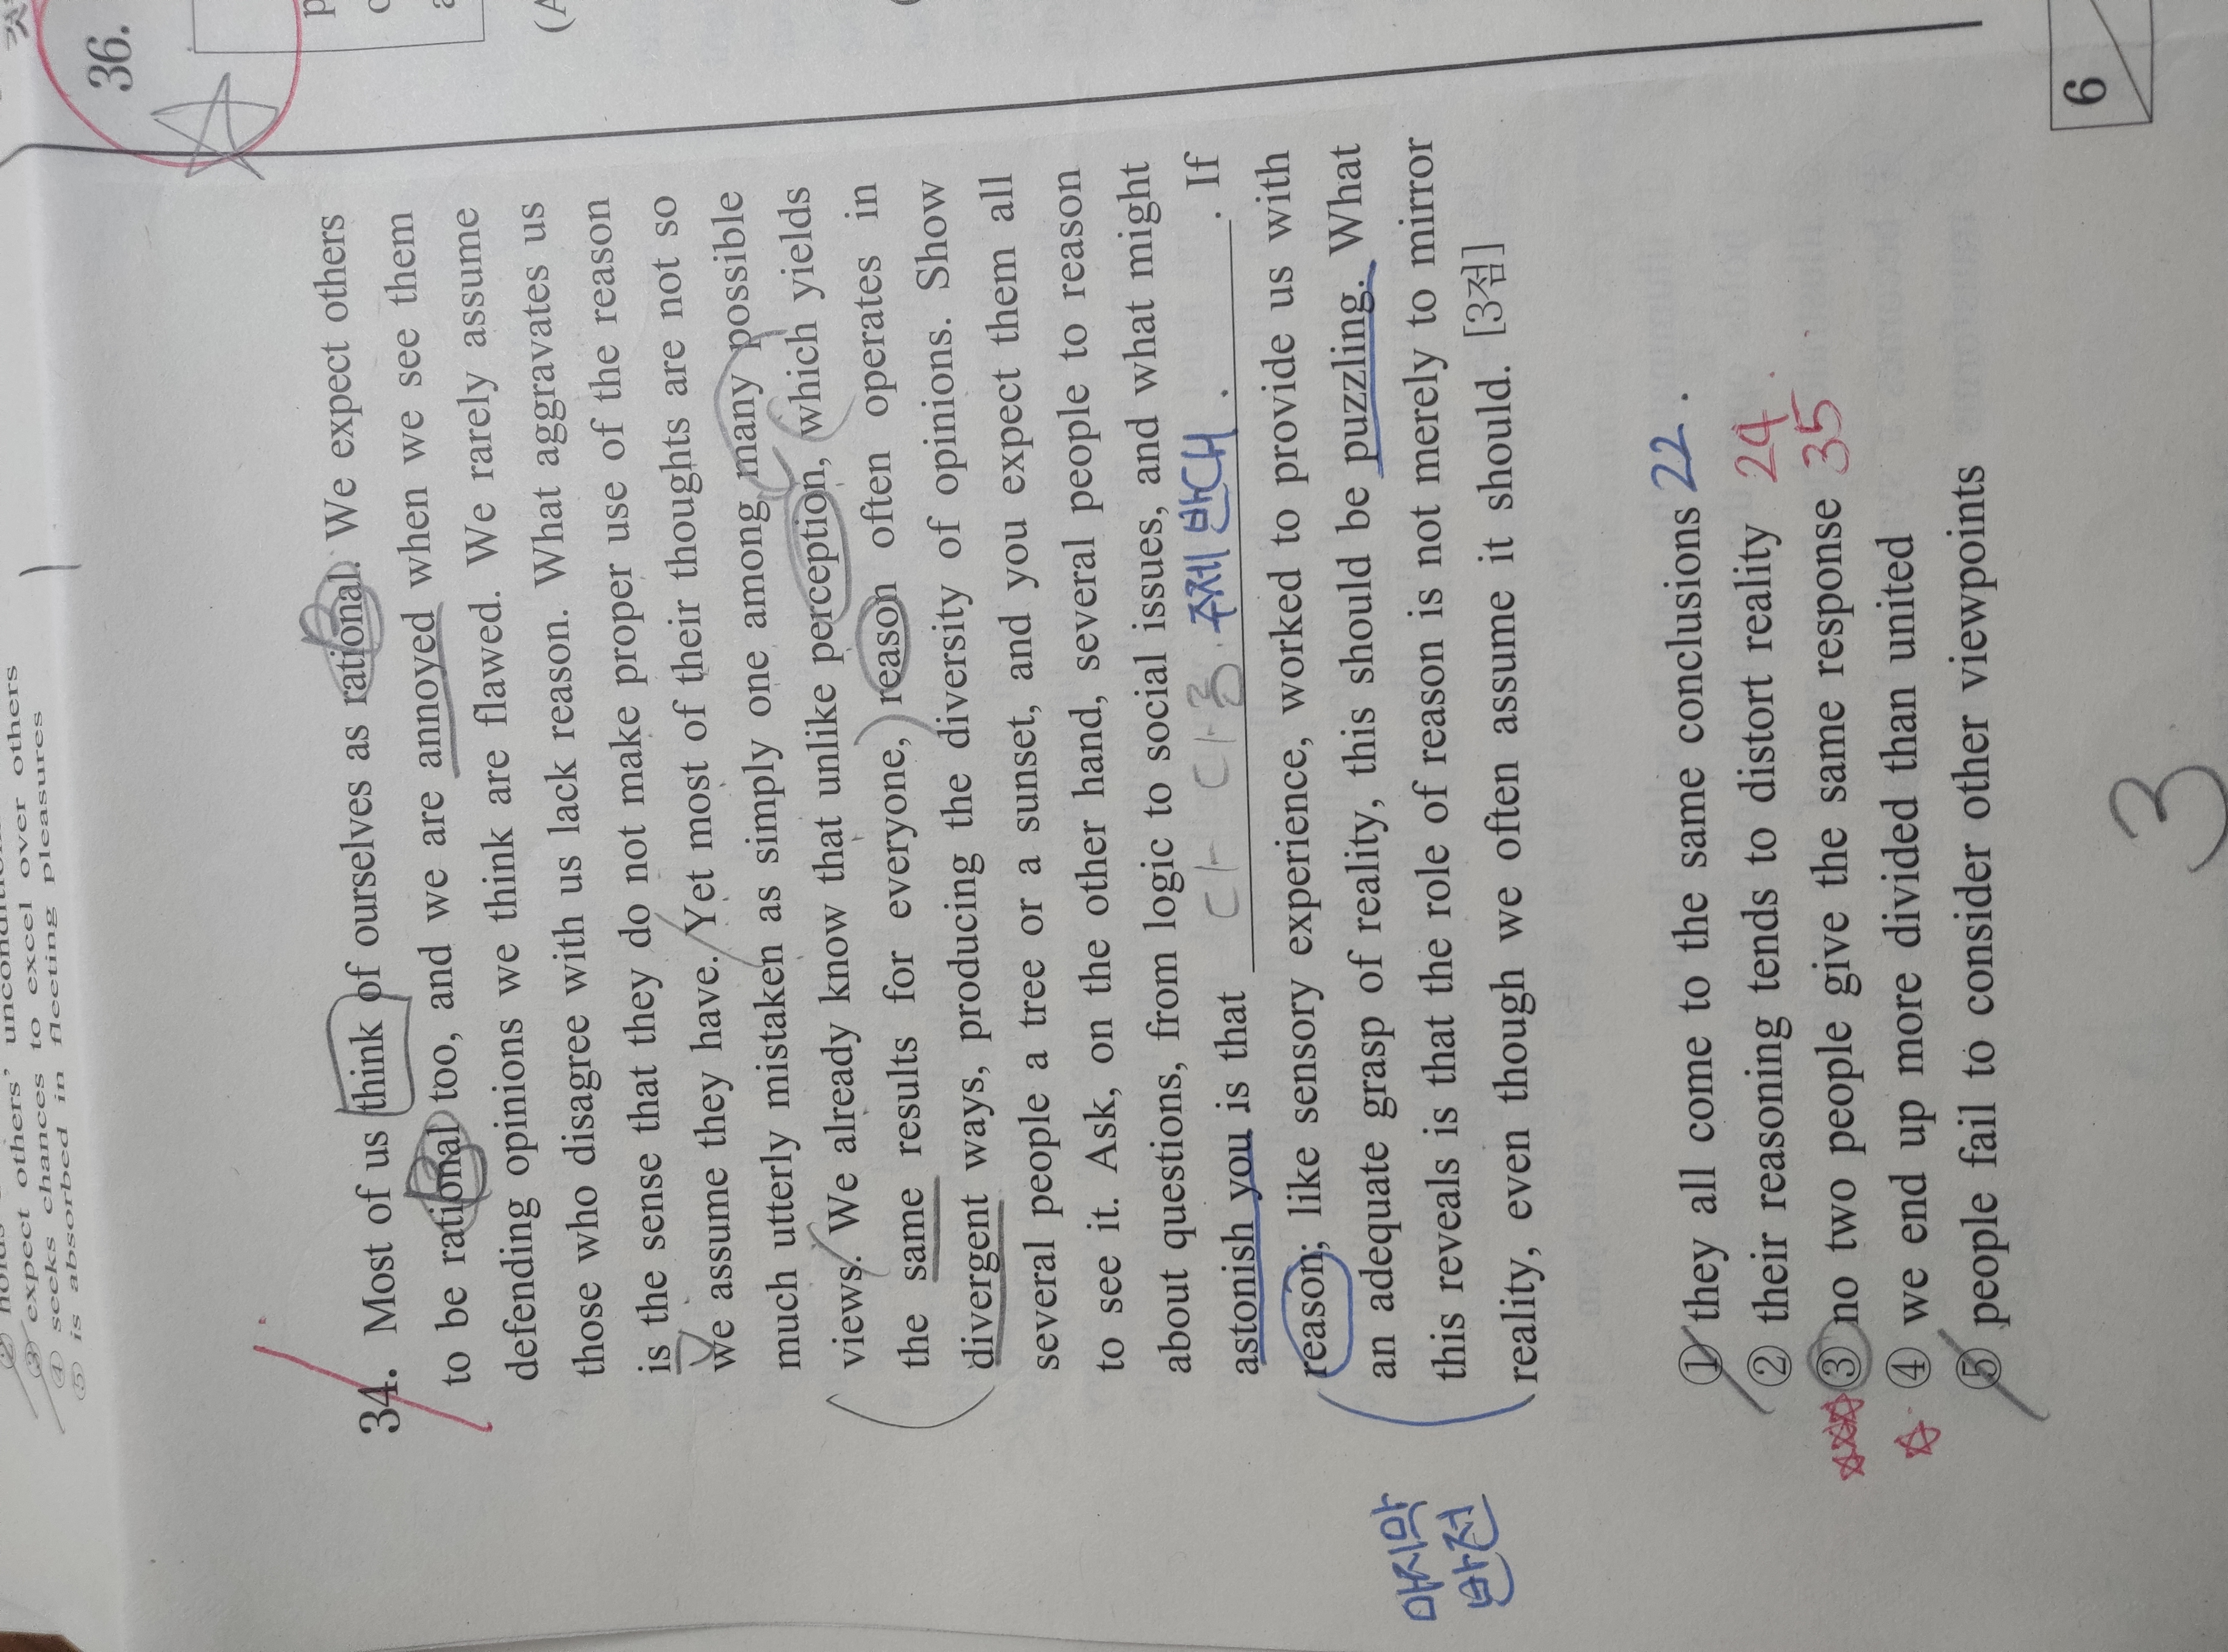 ② holds others' unconditional
③ expect others to excel over others
④ seeks chances to
⑤ is absorbed in fleeting pleasures
34. Most of us think of ourselves as rational. We expect others
to be rational too, and we are annoyed when we see them
defending opinions we think are flawed. We rarely assume
those who disagree with us lack reason. What aggravates us
is the sense that they do not make proper use of the reason
we assume they have. Yet most of their thoughts are not so
much utterly mistaken as simply one among many possible
views. We already know that unlike perception, which yields
the same results for everyone, reason often operates in
divergent ways, producing the diversity of opinions. Show
several people a tree or a sunset, and you expect them all
to see it. Ask, on the other hand, several people to reason
about questions, from logic to social issues, and what might
astonish you is that 다 다름. 주제 반대. . If
reason, like sensory experience, worked to provide us with
an adequate grasp of reality, this should be puzzling. What
this reveals is that the role of reason is not merely to mirror
reality, even though we often assume it should. [3점]
마지막
반전
① they all come to the same conclusions 22.
② their reasoning tends to distort reality 24.
③ no two people give the same response 35
④ we end up more divided than united
⑤ people fail to consider other viewpoints
3
6
36.
(A